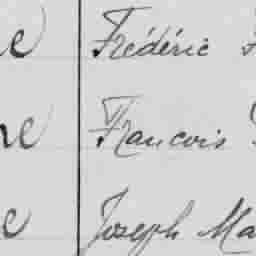 Frédéric
Francois
Joseph Ma